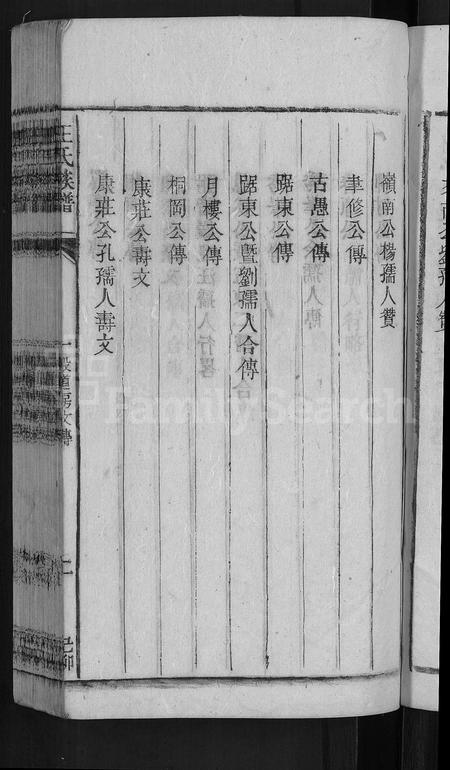 嶺南公楊孺人贊
聿修公傳
古愚公傳
踞東公傳
踞東公暨劉孺人合傳
月樓公傳
桐岡公傳
康莊公壽文
康莊公孔孺人壽文
王氏族譜
己卯
FamilySearch